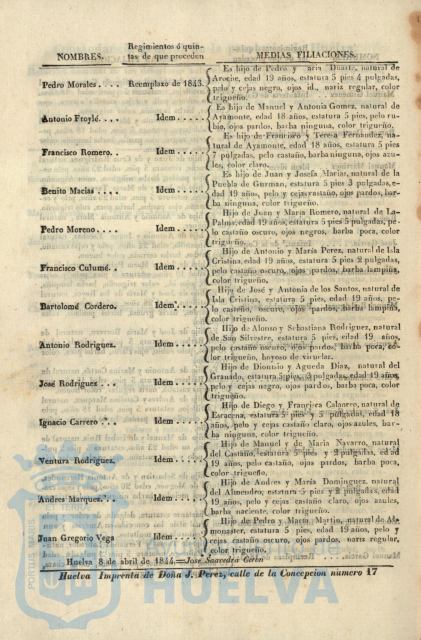 NOMBRES. Regimientos ó quintas de que proceden MEDIAS FILIACIONES.
Pedro Morales. . . . Reemplazo de 1843.
Es hijo de Pedro y Maria Duarte, natural de
Aroche, edad 19 años, estatura 5 pies 4 pulgadas,
pelo y cejas negro, ojos id., nariz regular, color
trigueño.
Antonio Froylé. . . . Idem . . . .
Es hijo de Manuel y Antonia Gomez, natural de
Ayamonte, edad 18 años, estatura 5 pies, pelo ru-
bio, ojos pardos, barba ninguna, color trigueño.
Francisco Romero. . . Idem . . . .
Es hijo de Francisco y Teresa Fernandez, na-
tural de Ayamonte, edad 18 años, estatura 5 pies
7 pulgadas, pelo castaño, barba ninguna, ojos azu-
les, color claro.
Benito Macias . . . . Idem . . . .
Es hijo de Juan y Josefa Marias, natural de la
Puebla de Guzman, estatura 5 pies 3 pulgadas, e-
dad 19 años, pelo y cejas castaño, ojos pardos, bar-
ba ninguna, color trigueño.
Pedro Moreno . . . . Idem . . . .
Hijo de Juan y Maria Romero, natural de La-
Palma, edad 19 años, estatura 5 pies 5 pulgadas, pe-
lo castaño oscuro, ojos negros, barba poca, color
trigueño.
Francisco Culumé. . Idem . . . .
Hijo de Antonio y Maria Perez, natural de Isla
Cristina, edad 19 años, estatura 5 pies 2 pulgadas,
pelo castaño oscuro, ojos pardos, barba lampiña,
color trigueño.
Bartolomé Cordero. Idem . . . .
Hijo de José y Antonia de los Santos, natural de
Isla Cristina, estatura 5 pies, edad 19 años, pe-
lo castaño, oscuro, ojos pardos, barba lampiña,
color trigueño.
Antonio Rodriguez. Idem . . . .
Hijo de Alonso y Sebastiana Rodriguez, natural
de San Silvestre, estatura 5 pies, edad 19 años,
pelo castaño oscuro, ojos pardos, barba poca, co-
lor trigueño, hoyoso de viruelas.
José Rodriguez . . . Idem . . . .
Hijo de Dionisio y Agueda Diaz, natural del
Granado, estatura 5 pies pulgadas, edad 19 años,
pelo y cejas negro, ojos pardos, barba poca, color
trigueño.
Ignacio Carrero . . . Idem . . . .
Hijo de Diego y Francisca Calanero, natural de
Escacena, estatura 5 pies y 3 pulgadas, edad 18
años, pelo y cejas castaño claro, ojos azules, bar-
ba ninguna, color trigueño.
Ventura Rodriguez. Idem . . . .
Hijo de Manuel y de Maria Navarro, natural
del Castaño, estatura 5 pies y 2 pulgadas, ed ad
19 años, pelo castaño, ojos pardos, barba poca,
color trigueño.
Andres Marquez. . . Idem . . . .
Hijo de Andres y María Dominguez, natural
del Almendro, estatura 5 pies y 2 pulgadas, edad
19 años, pelo y cejas castaño claro, ojos azules,
barba naciente, color trigueño.
Juan Gregorio Vega Idem . . . .
Hijo de Pedro y Maria Martin, natural de Al-
monaster, estatura 5 pies, edad 19 años, pelo y
cejas castaño oscuro, ojos pardos, nariz regular,
color trigueño.
Huelva 8 de abril de 1844.=José Saavedra Cerón
Huelva Imprenta de Doña J. Perez, calle de la Concepcion número 17
HUELVA